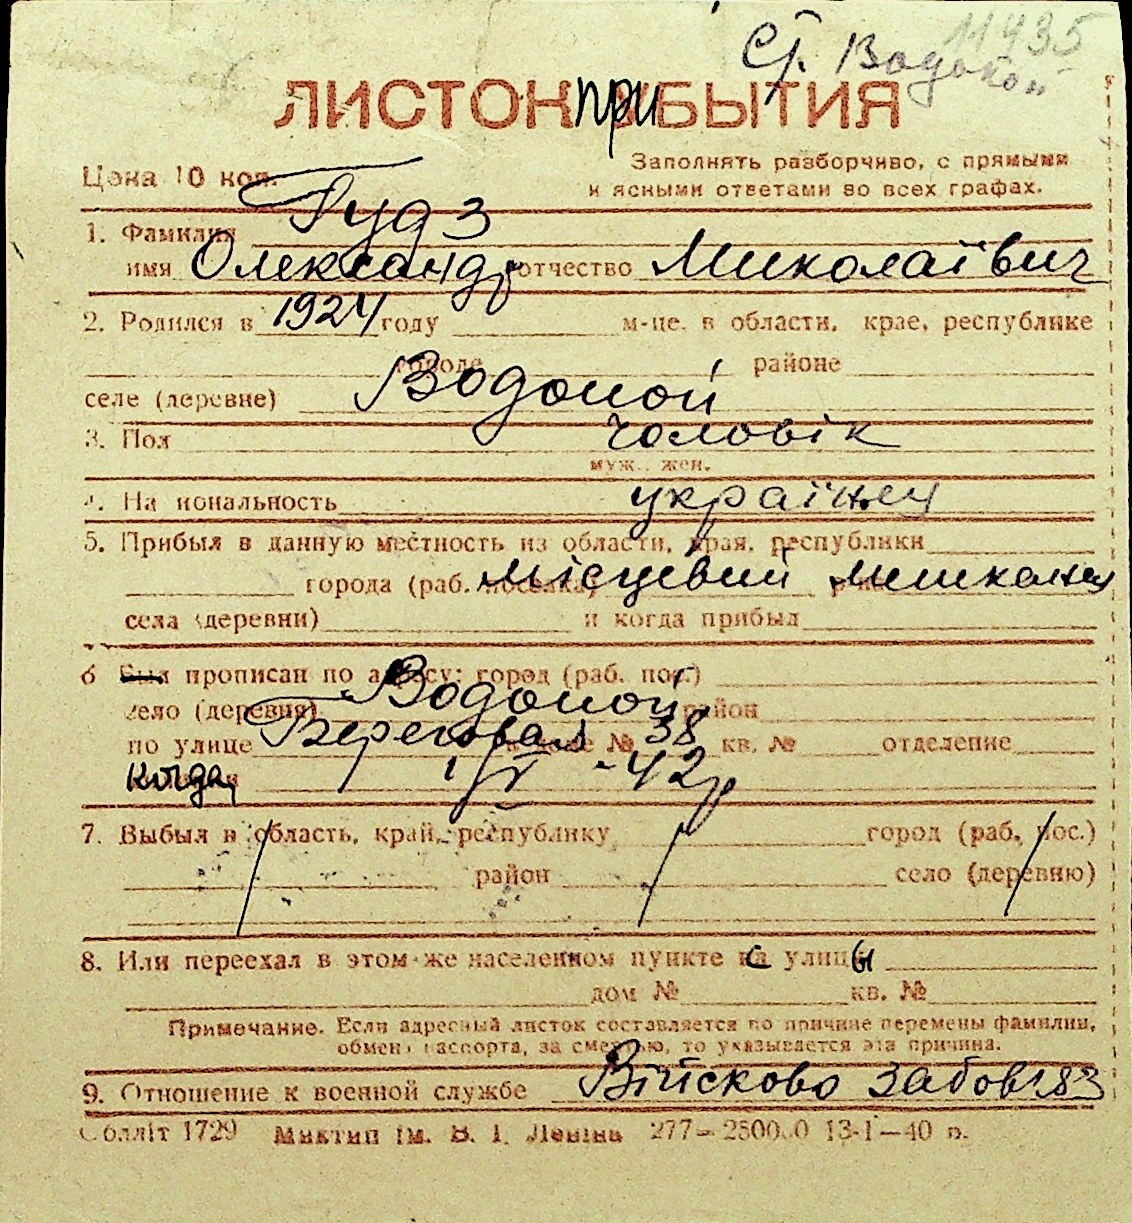 11435
Ст. Водопой
ЛИСТОК ПРИБЫТИЯ
Цена 10 коп.
Заполнять разборчиво, с прямыми
и ясными ответами во всех графах.
1. Фамилия Гудз
имя Олександр отчество Миколаївич
2. Родился в 1924 году м-це, в области, крае, республике
городе районе
селе (деревне) Водопой
3. Пол чоловік
муж., жен.
4. Национальность українец
5. Прибыл в данную местность из области, края, республики
города (раб. поселка) місцевий мешканец
села (деревни) и когда прибыл
6 Был прописан по адресу: город (раб. пос.)
село (деревня) Водопой район
по улице Береговая № 38 кв. № отделение
когда 1/V -42р
7. Выбыл в область, край, республику город (раб. пос.)
район село (деревню)
8. Или переехал в этом же населенном пункте с улицы
дом № кв. №
Примечание. Если адресный листок составляется по причине перемены фамилии,
обмена паспорта, за смертью, то указывается эта причина.
9. Отношение к военной службе Військово забовяз
Облліт 1729 Миктип ім. В. І. Леніна 277—250000 13-I—40 р.